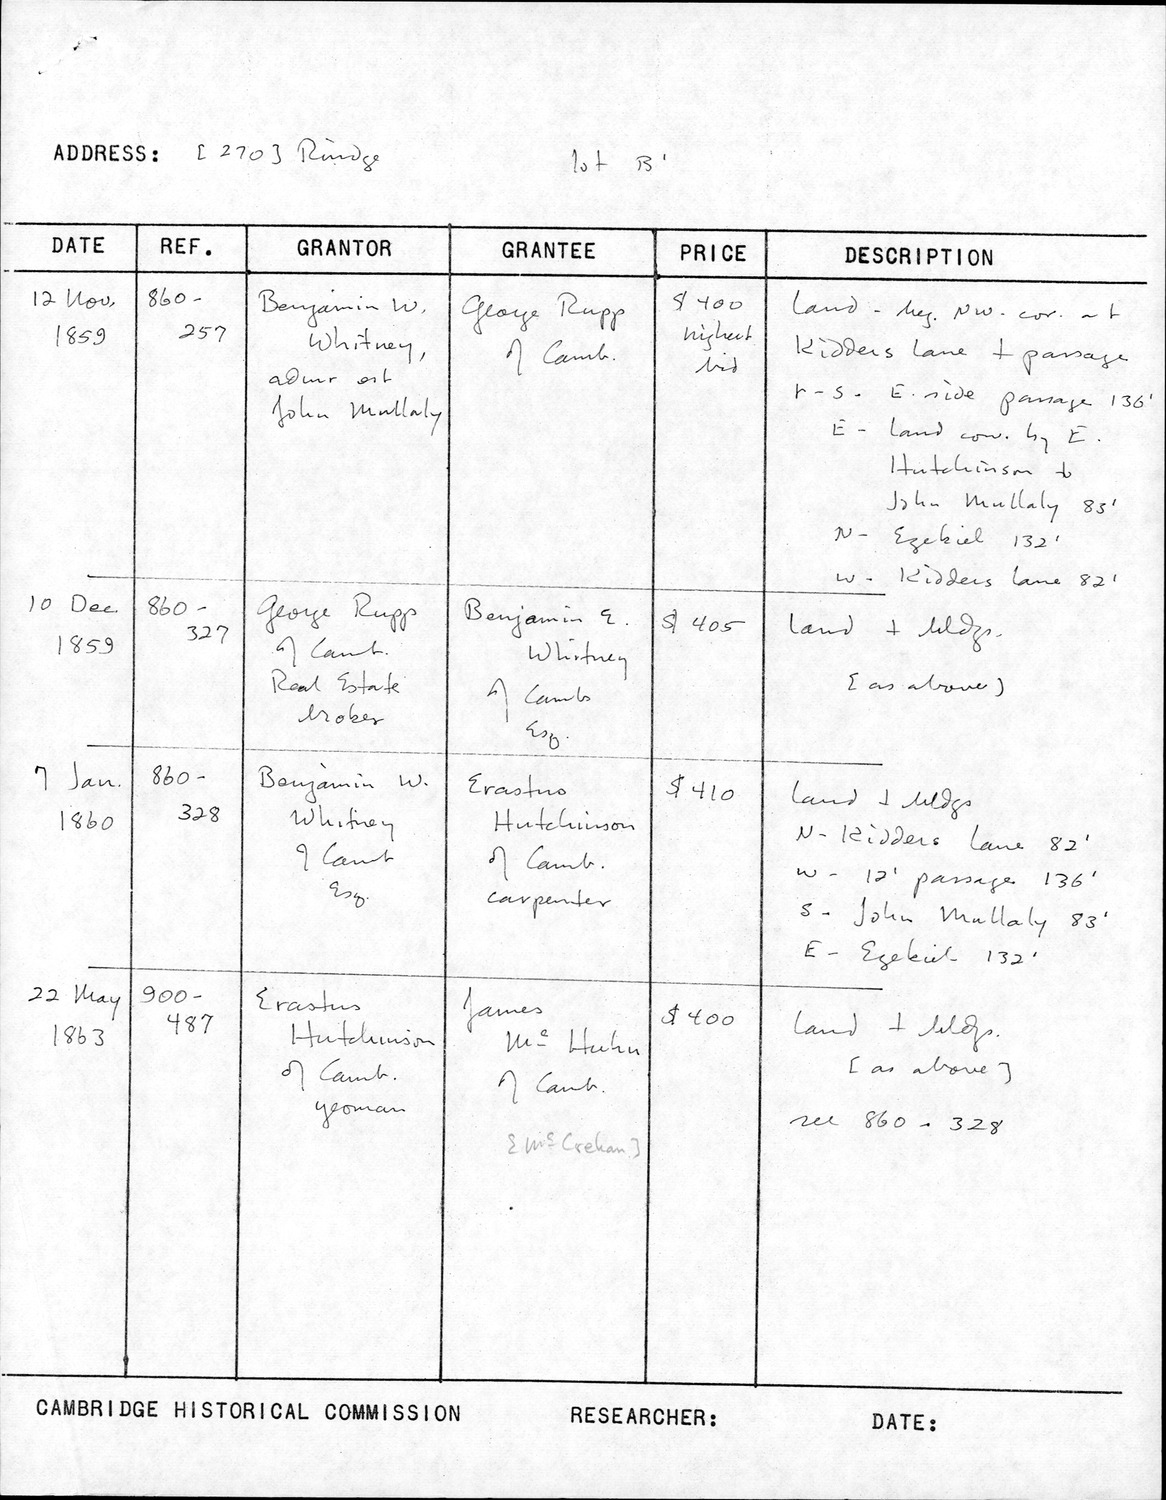 ADDRESS: [270] Rindge lot B'
DATE REF. GRANTOR GRANTEE PRICE DESCRIPTION
12 Nov. 1859
860-257
Benjamin W.
Whitney,
admr est
John Mullaly
George Rupp
of Camb.
$400
highest
bid
land - beg. NW. cor. at
Kidders Lane + passage
r - S - E. side passage 136'
E - land conv. by E.
Hutchinson to
John Mullaly 83'
N - Ezekiel 132'
W - Kidders Lane 82'
10 Dec.
1859
860-
327
George Rupp
of Camb.
Real Estate
broker
Benjamin E.
Whitney
of Camb
Esq.
$405
land + bldgs.
[as above]
7 Jan.
1860
860-
328
Benjamin W.
Whitney
of Camb
Esq.
Erastus
Hutchinson
of Camb.
carpenter
$410
land + bldgs
N - Kidders Lane 82'
W - 12' passage 136'
S - John Mullaly 83'
E - Ezekiel 132'
22 May
1863
900-
487
Erastus
Hutchinson
of Camb.
yeoman
James
Mc Huhn
of Camb.
[McCrehan]
$400
land + bldgs.
[as above]
see 860 - 328
CAMBRIDGE HISTORICAL COMMISSION RESEARCHER: DATE: